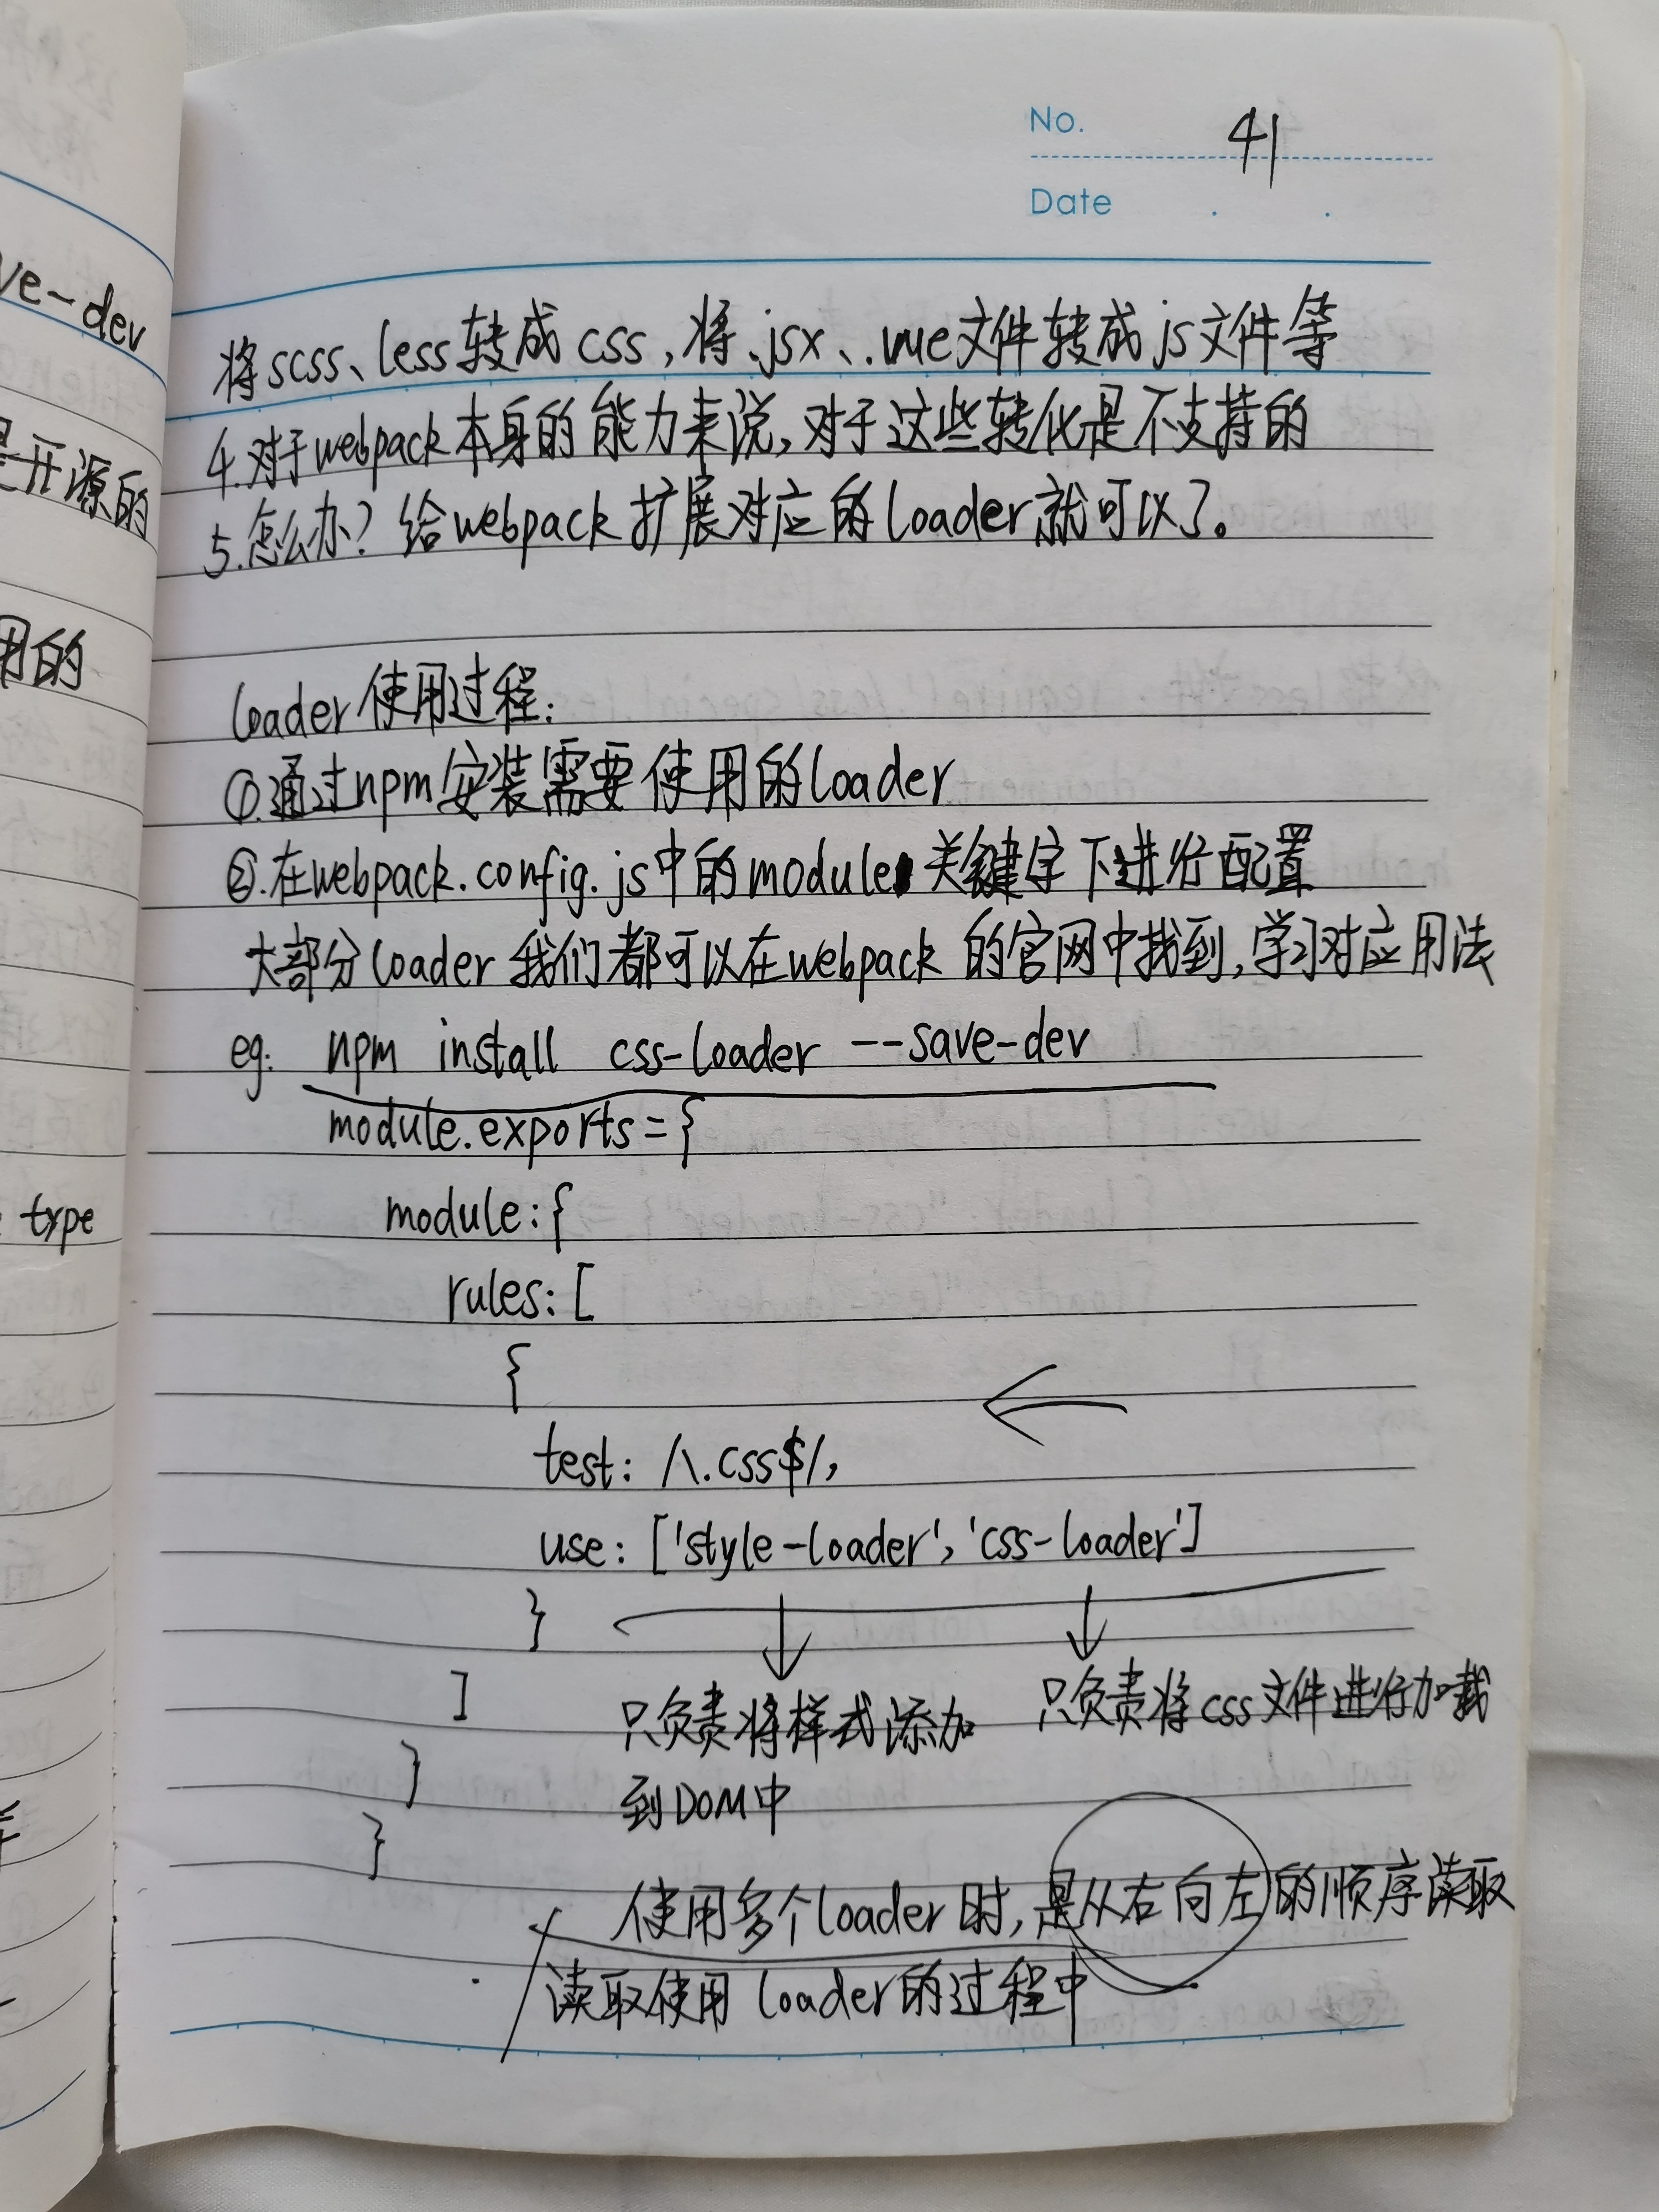 No. 41
Date
ve-dev
是开源的
用的
type
将scss、less转成css,将.jsx、.vue文件转成js文件等
4.对于webpack本身的能力来说,对于这些转化是不支持的
5.怎么办?给webpack扩展对应的loader就可以了。
loader使用过程:
①.通过npm安装需要使用的loader
②.在webpack.config.js中的module关键字下进行配置
大部分loader我们都可以在webpack的官网中找到,学习对应用法
eg: npm install css-loader --save-dev
module.exports={
module:{
rules:[
{
test: /\.css$/,
use: ['style-loader','css-loader']
}
]
只负责将样式添加 只负责将css文件进行加载
}
到DOM中
}
使用多个loader时,是从右向左的顺序读取
读取使用loader的过程中